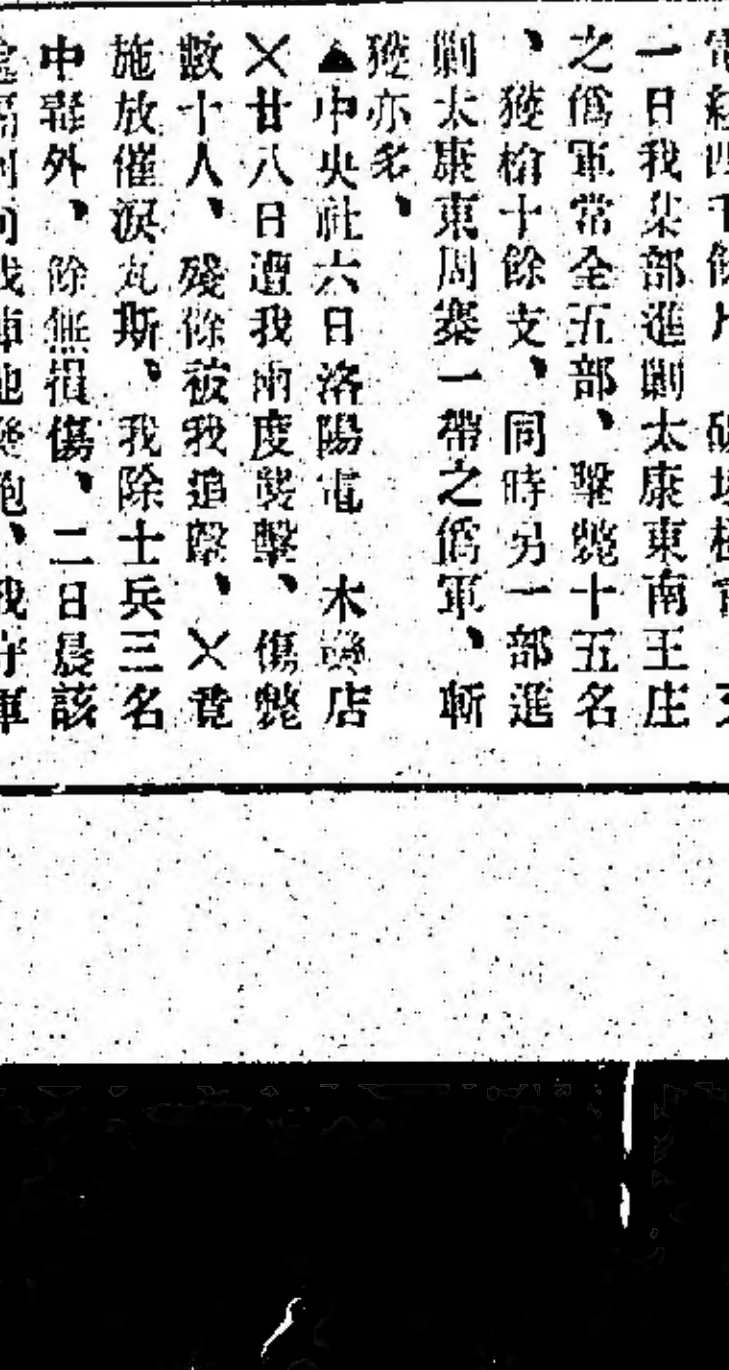 一日我某部進剿太康東南王庄
之僞軍常全五部、擊斃十五名
、獲槍十餘支、同時另一部進
剿太康東周寨一帶之僞軍、斬
獲亦多、
▲中央社六日洛陽電 木欒店
×廿八日遭我兩度襲擊、傷斃
數十人、殘餘被我追擊、×竟
施放催淚瓦斯、我除士兵三名
中毒外、餘無損傷、二日晨該